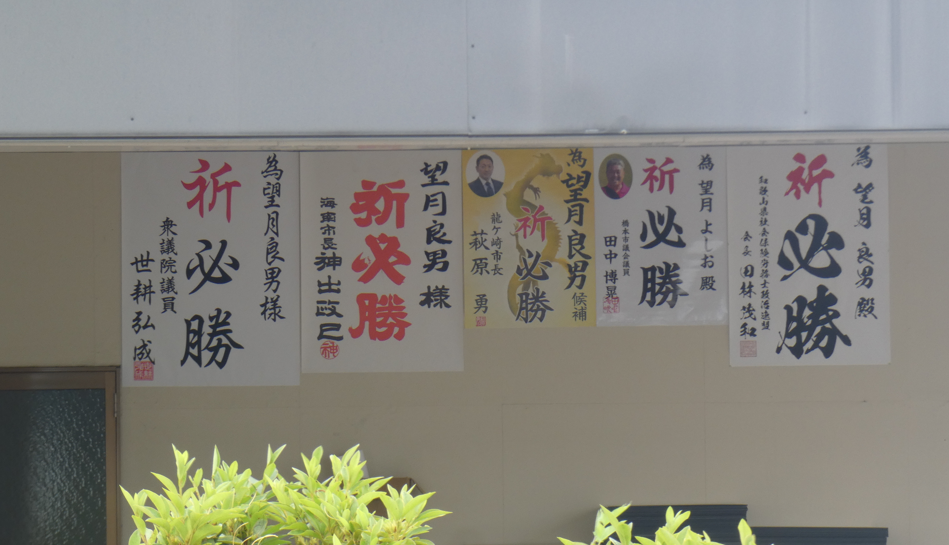 為望月良男様
祈必勝
衆議院議員
世耕弘成
望月良男様
祈必勝
海南市長神出政巳
為望月良男候補
祈必勝
龍ケ崎市長
萩原勇
為望月よしお殿
祈必勝
橋本市議会議員
田中博晃
為望月良男殿
祈必勝
和歌山県社会保険労務士政治連盟
会長